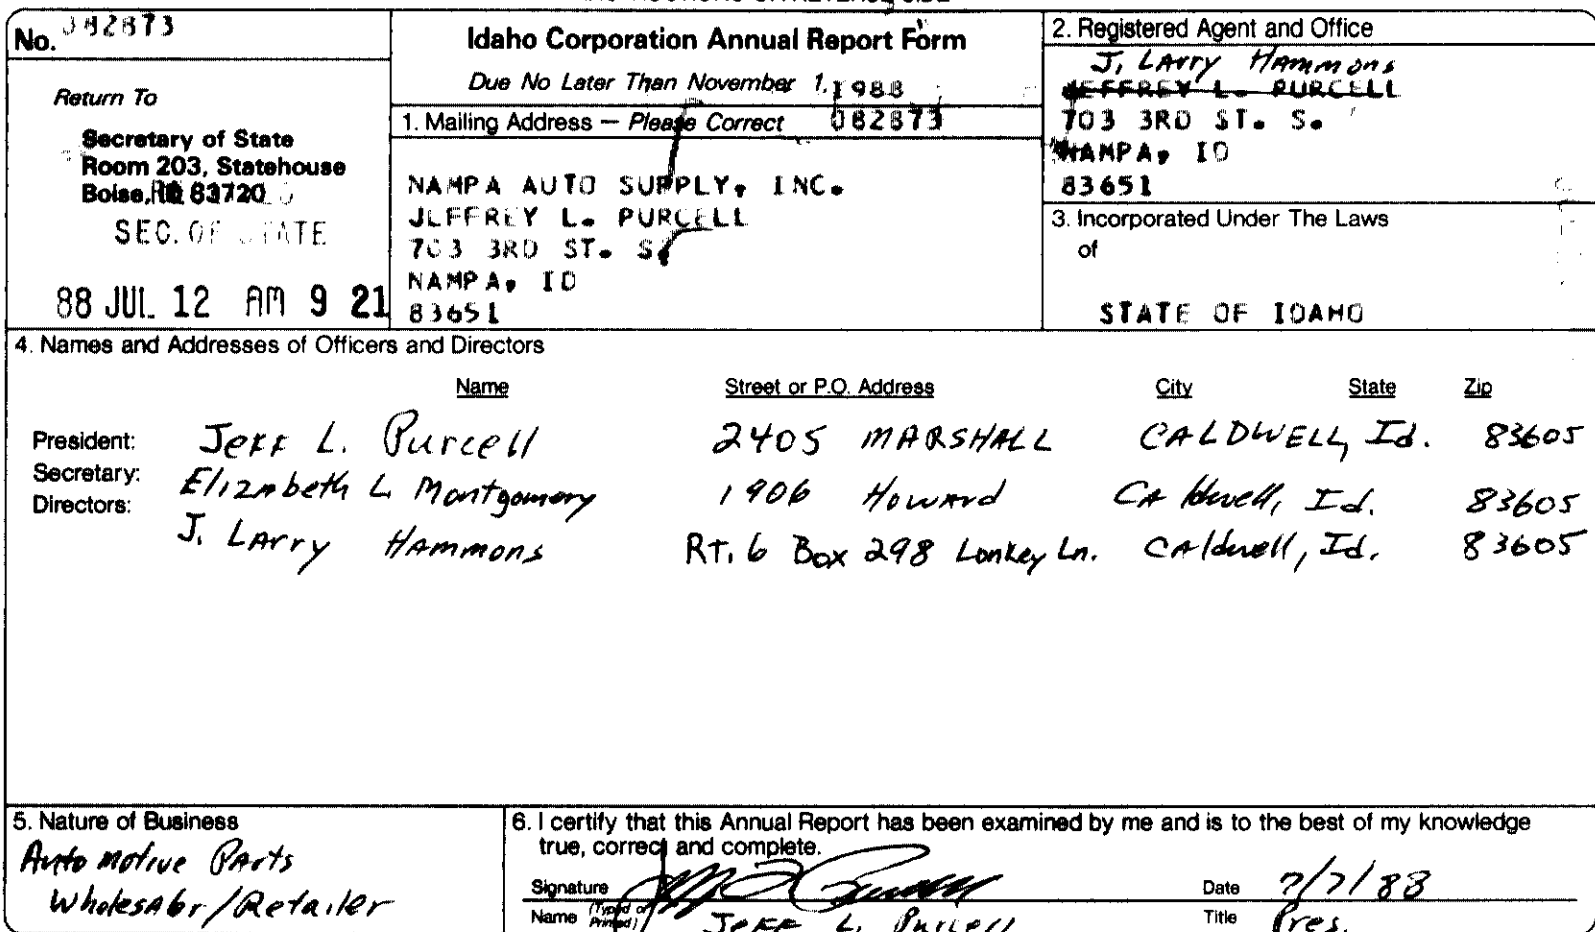 No. 082873
Idaho Corporation Annual Report Form
Due No Later Than November 1, 1988
Return To
Secretary of State
Room 203, Statehouse
Boise, ID 83720
SEC. OF STATE
88 JUL 12 AM 9 21
1. Mailing Address — Please Correct 082873
NAMPA AUTO SUPPLY, INC.
JEFFREY L. PURCELL
703 3RD ST. S.
NAMPA, ID
83651
2. Registered Agent and Office
J. Larry Hammons
JEFFREY L. PURCELL
703 3RD ST. S.
NAMPA, ID
83651
3. Incorporated Under The Laws
of
STATE OF IDAHO
4. Names and Addresses of Officers and Directors
Name Street or P.O. Address City State Zip
President: Jeff L. Purcell 2405 MARSHALL CALDWELL, Id. 83605
Secretary: Elizabeth L Montgomery 1906 Howard Caldwell, Id. 83605
Directors: J. Larry Hammons RT. 6 Box 298 Lonkey Ln. Caldwell, Id. 83605
5. Nature of Business
Automotive Parts
Wholesalor/Retailer
6. I certify that this Annual Report has been examined by me and is to the best of my knowledge
true, correct and complete.
Signature Date 7/7/88
Name (Typed or Printed) Jeff L. Purcell Title Pres.